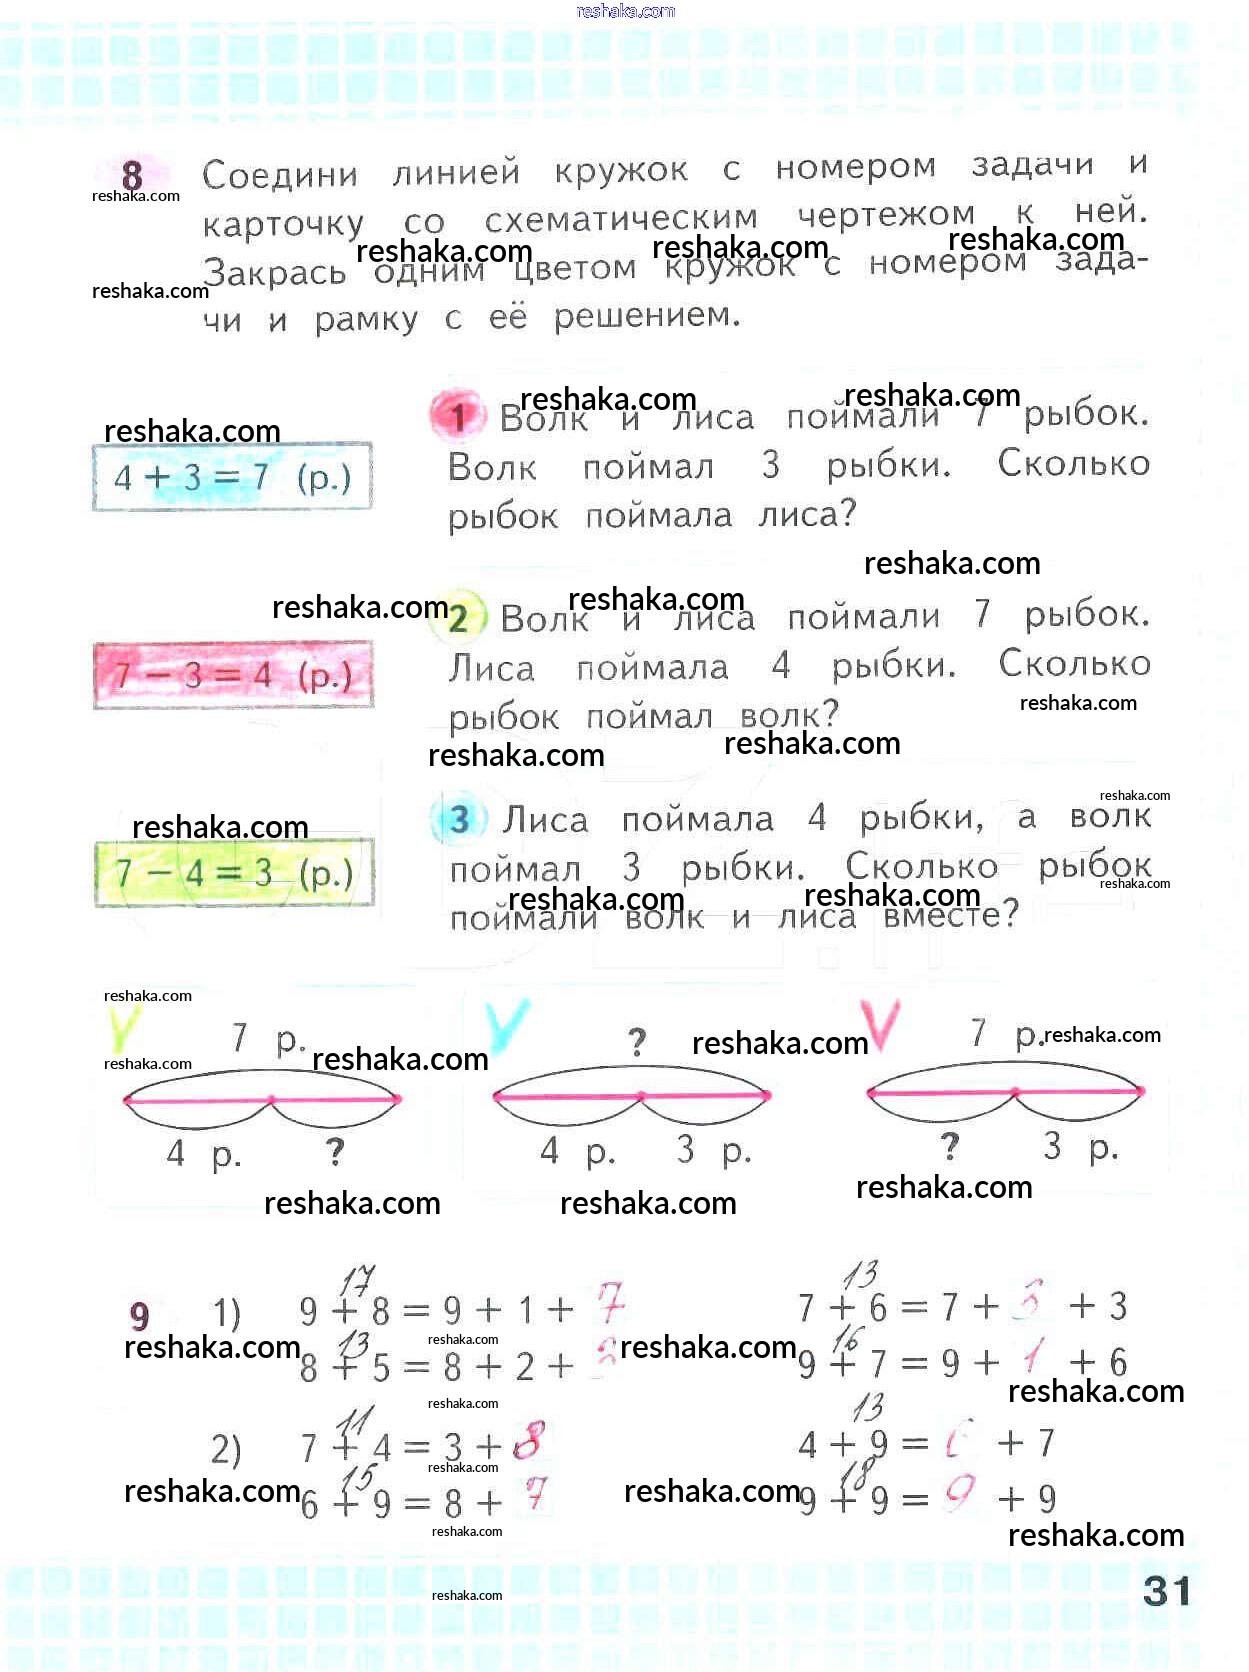 reshaka.com
8 Соедини линией кружок с номером задачи и
reshaka.com
карточку со схематическим чертежом к ней.
reshaka.com reshaka.com reshaka.com
Закрась одним цветом кружок с номером зада-
reshaka.com
чи и рамку с её решением.
reshaka.com reshaka.com
1 Волк и лиса поймали 7 рыбок.
reshaka.com
4 + 3 = 7 (р.)
Волк поймал 3 рыбки. Сколько
рыбок поймала лиса?
reshaka.com
reshaka.com reshaka.com
2 Волк и лиса поймали 7 рыбок.
7 − 3 = 4 (р.)
Лиса поймала 4 рыбки. Сколько
reshaka.com
рыбок поймал волк?
reshaka.com reshaka.com
reshaka.com
reshaka.com
3 Лиса поймала 4 рыбки, а волк
7 − 4 = 3 (р.)
поймал 3 рыбки. Сколько рыбок
reshaka.com reshaka.com reshaka.com
поймали волк и лиса вместе?
reshaka.com
V 7 р. V ? V 7 р.
reshaka.com reshaka.com reshaka.com
reshaka.com
4 р. ? 4 р. 3 р. ? 3 р.
reshaka.com reshaka.com reshaka.com
17 13
9 1) 9 + 8 = 9 + 1 + 7 7 + 6 = 7 + 3 + 3
reshaka.com reshaka.com reshaka.com
13 16
8 + 5 = 8 + 2 + 3 9 + 7 = 9 + 1 + 6
reshaka.com reshaka.com
11 13
2) 7 + 4 = 3 + 8 4 + 9 = 6 + 7
reshaka.com
15 18
reshaka.com reshaka.com
6 + 9 = 8 + 7 9 + 9 = 9 + 9
reshaka.com reshaka.com
reshaka.com
31